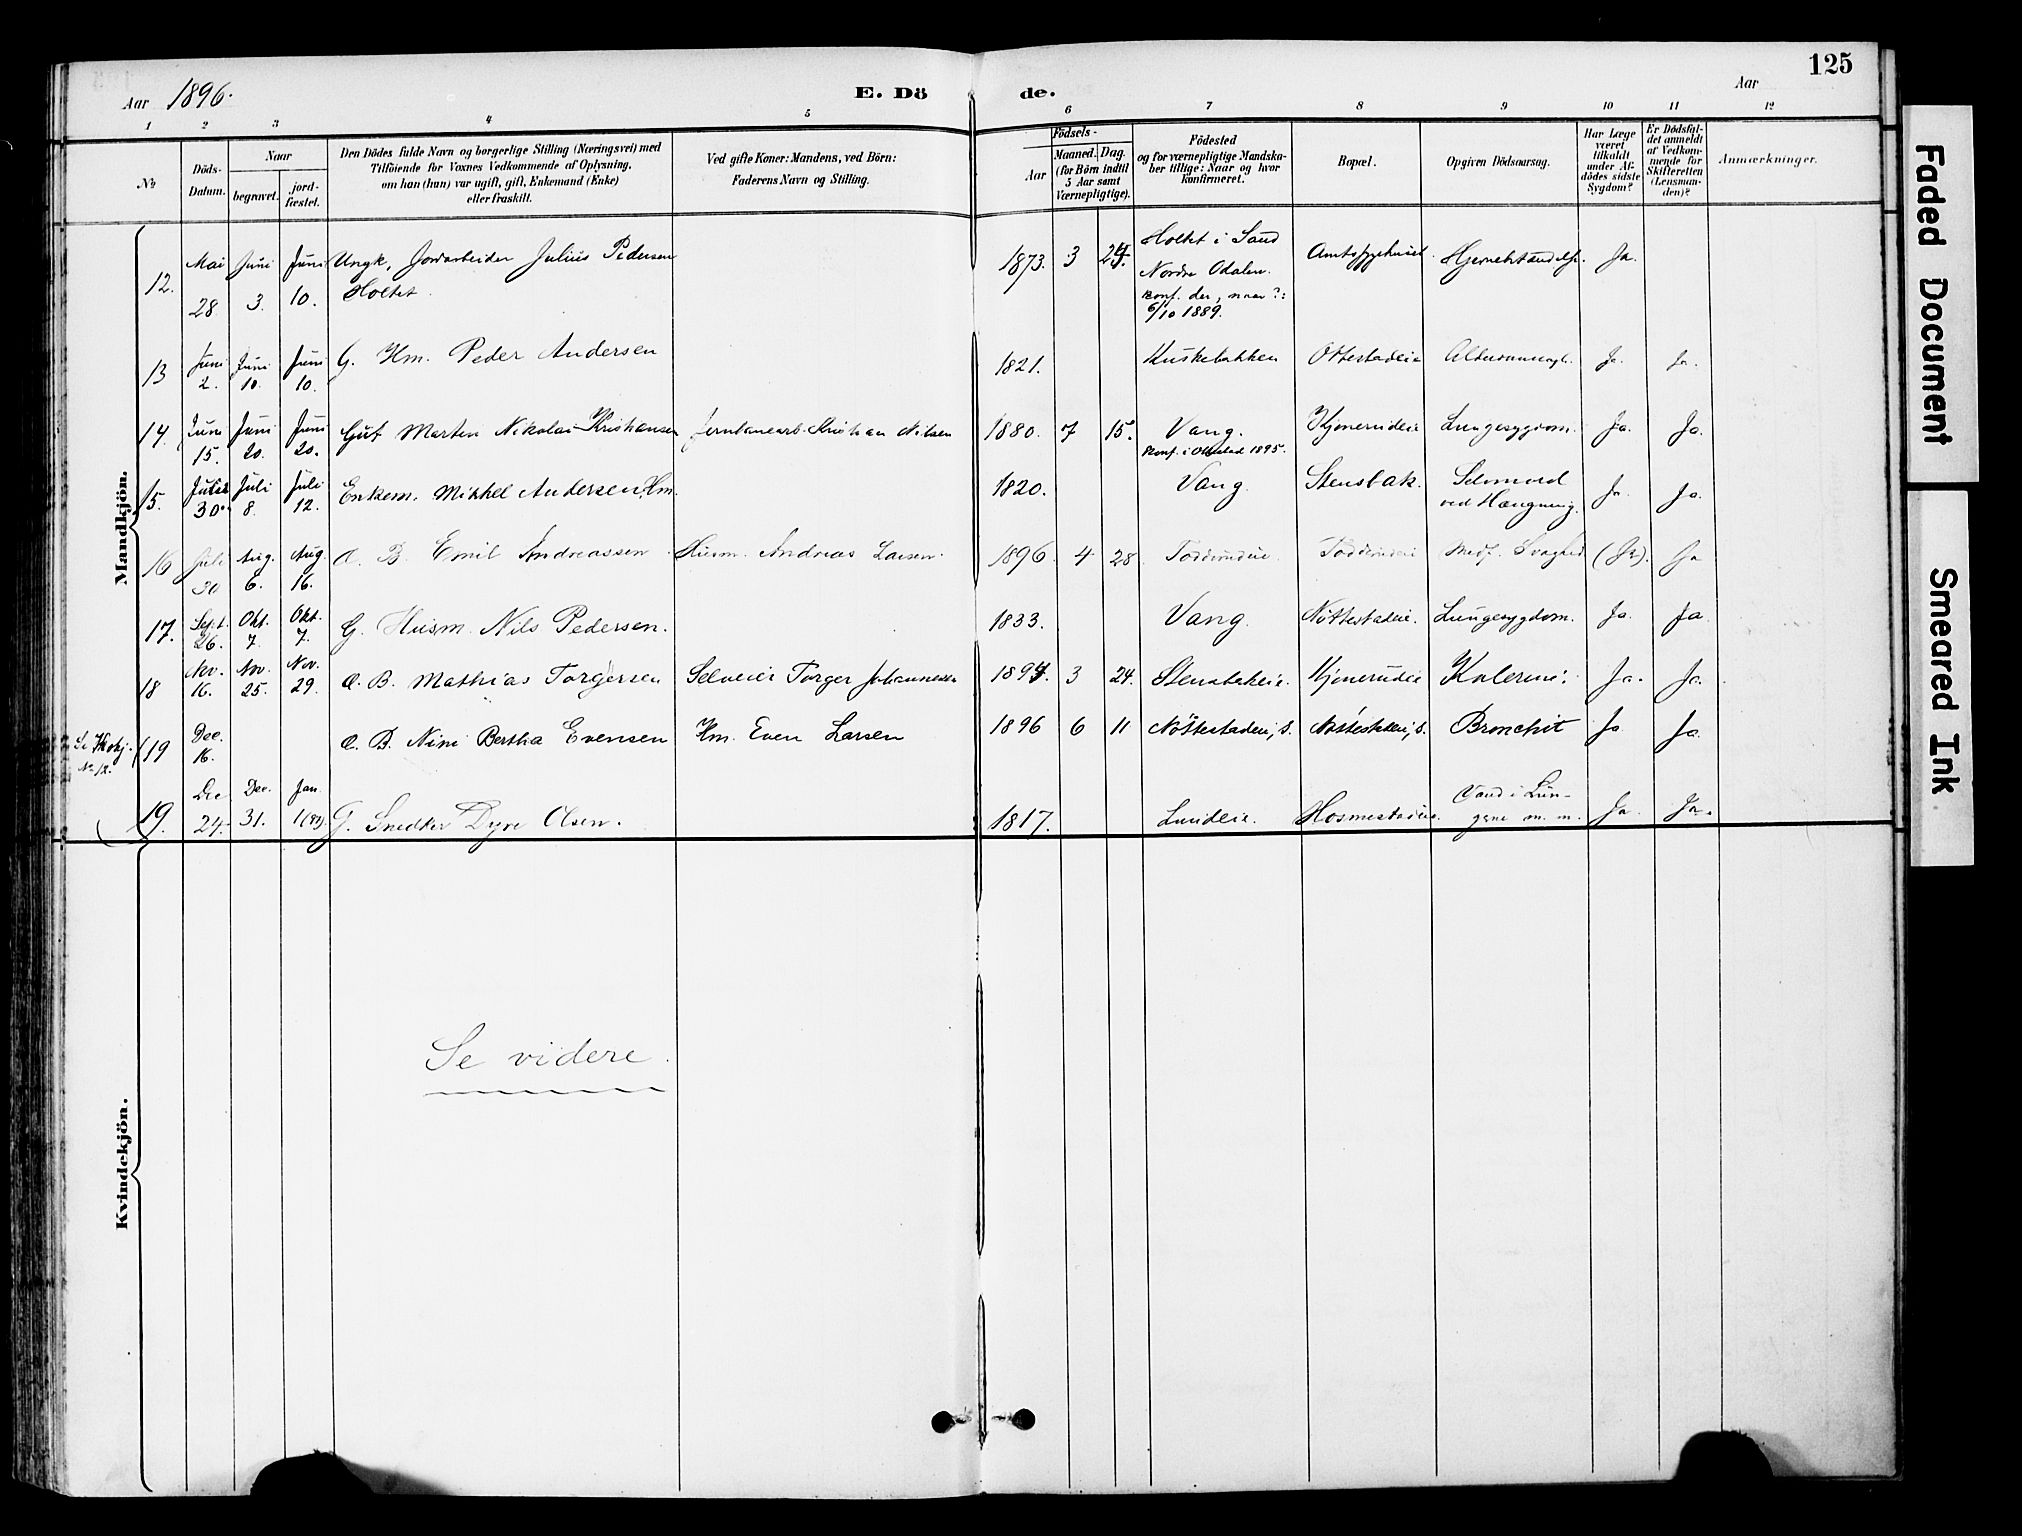 125
Aar 1896.
E. Dö de.
Aar
1 2 3 4 5 6 7 8 9 10 11 12
No
Döds-
Datum.
Naar
begravet.
jord-
fæstet.
Den Dödes fulde Navn og borgerlige Stilling (Næringsvei) med
Tilföiende for Voxnes Vedkommende af Oplysning,
om han (hun) var ugift, gift, Enkemand (Enke)
eller fraskilt.
Ved gifte Koner: Mandens, ved Börn:
Faderens Navn og Stilling.
Födsels-
Aar
Maaned. Dag.
(for Börn indtil
5 Aar samt
Værnepligtige).
Födested
og for værnepligtige Mandska-
ber tillige: Naar og hvor
konfirmeret.
Bopæl.
Opgiven Dödsaarsag.
Har Læge
været
tilkaldt
under Af-
dödes sidste
Sygdom?
Er Dödsfal-
det anmeldt
af Vedkom-
mende for
Skifteretten
(Lensman-
den)?
Anmærkninger.
Mandkjön.
12. Mai 28 Juni 3. Juni 10. Ungk. Jordarbeider Julius Pedersen
Holtet
1873. 3 Holtet i Sand
Nordre Odalen.
konf. der, naar?:
6/10 1889.
Amtssygehuset. Ja.
13 Juni 2. Juni 10. Juni 10. G. Hm. Peder Andersen 1821. Kuskebakken Ottestadeie Ja. Ja.
14. Juni 15. Juni 20. Juni 20. Gut Marten Nikolai Kristiansen Kristian Nilsen 1880. 7 15. Vang.
konf. i Ottestad 1895.
Kjonerudeie Lungesygdom. Ja. Ja.
15. 30. Juli 8. Juli 12. Enkem. Mikkel Andersen, Hm. 1820. Vang Stensbak. Selvmord
ved Hængning. Ja. Ja.
16 Juli 30 Aug. 6. Aug. 16. O. B. Emil Andreassen. Husm. Andreas Larsen. 1896. 4 28 Medf. Svaghed (Ja). Ja
17. Sept. 26. Okt. 7. Okt. 7. G. Husm. Nils Pedersen. 1833. Vang. Nöttestadeie. Lungesygdom. Ja. Ja
18 Nov. 16. Nov. 25. Nov. 29. O. B. Mathias Torgersen Selveier Torger Johannesen 3 24. Stensbakeie. Kjonerudeie Kolerine. Ja. Ja.
Se Kvkj.
No 12.
19 Dec. 16. O. B. Nini Bertha Evensen Hm. Even Larsen 1896 6 11 Nöttestadeie, s. Nöttestadeie, s. Bronchit Ja Ja.
19. Dec 24. Dec. 31. Jan. 1 (97). G. Snedker Dyre Olsen. 1817. Lundeie. Hosmestadeie. Vand i Lun-
gene m. m. Ja. Ja.
Kvindekjön.
Se videre.
Faded Document
Smeared Ink